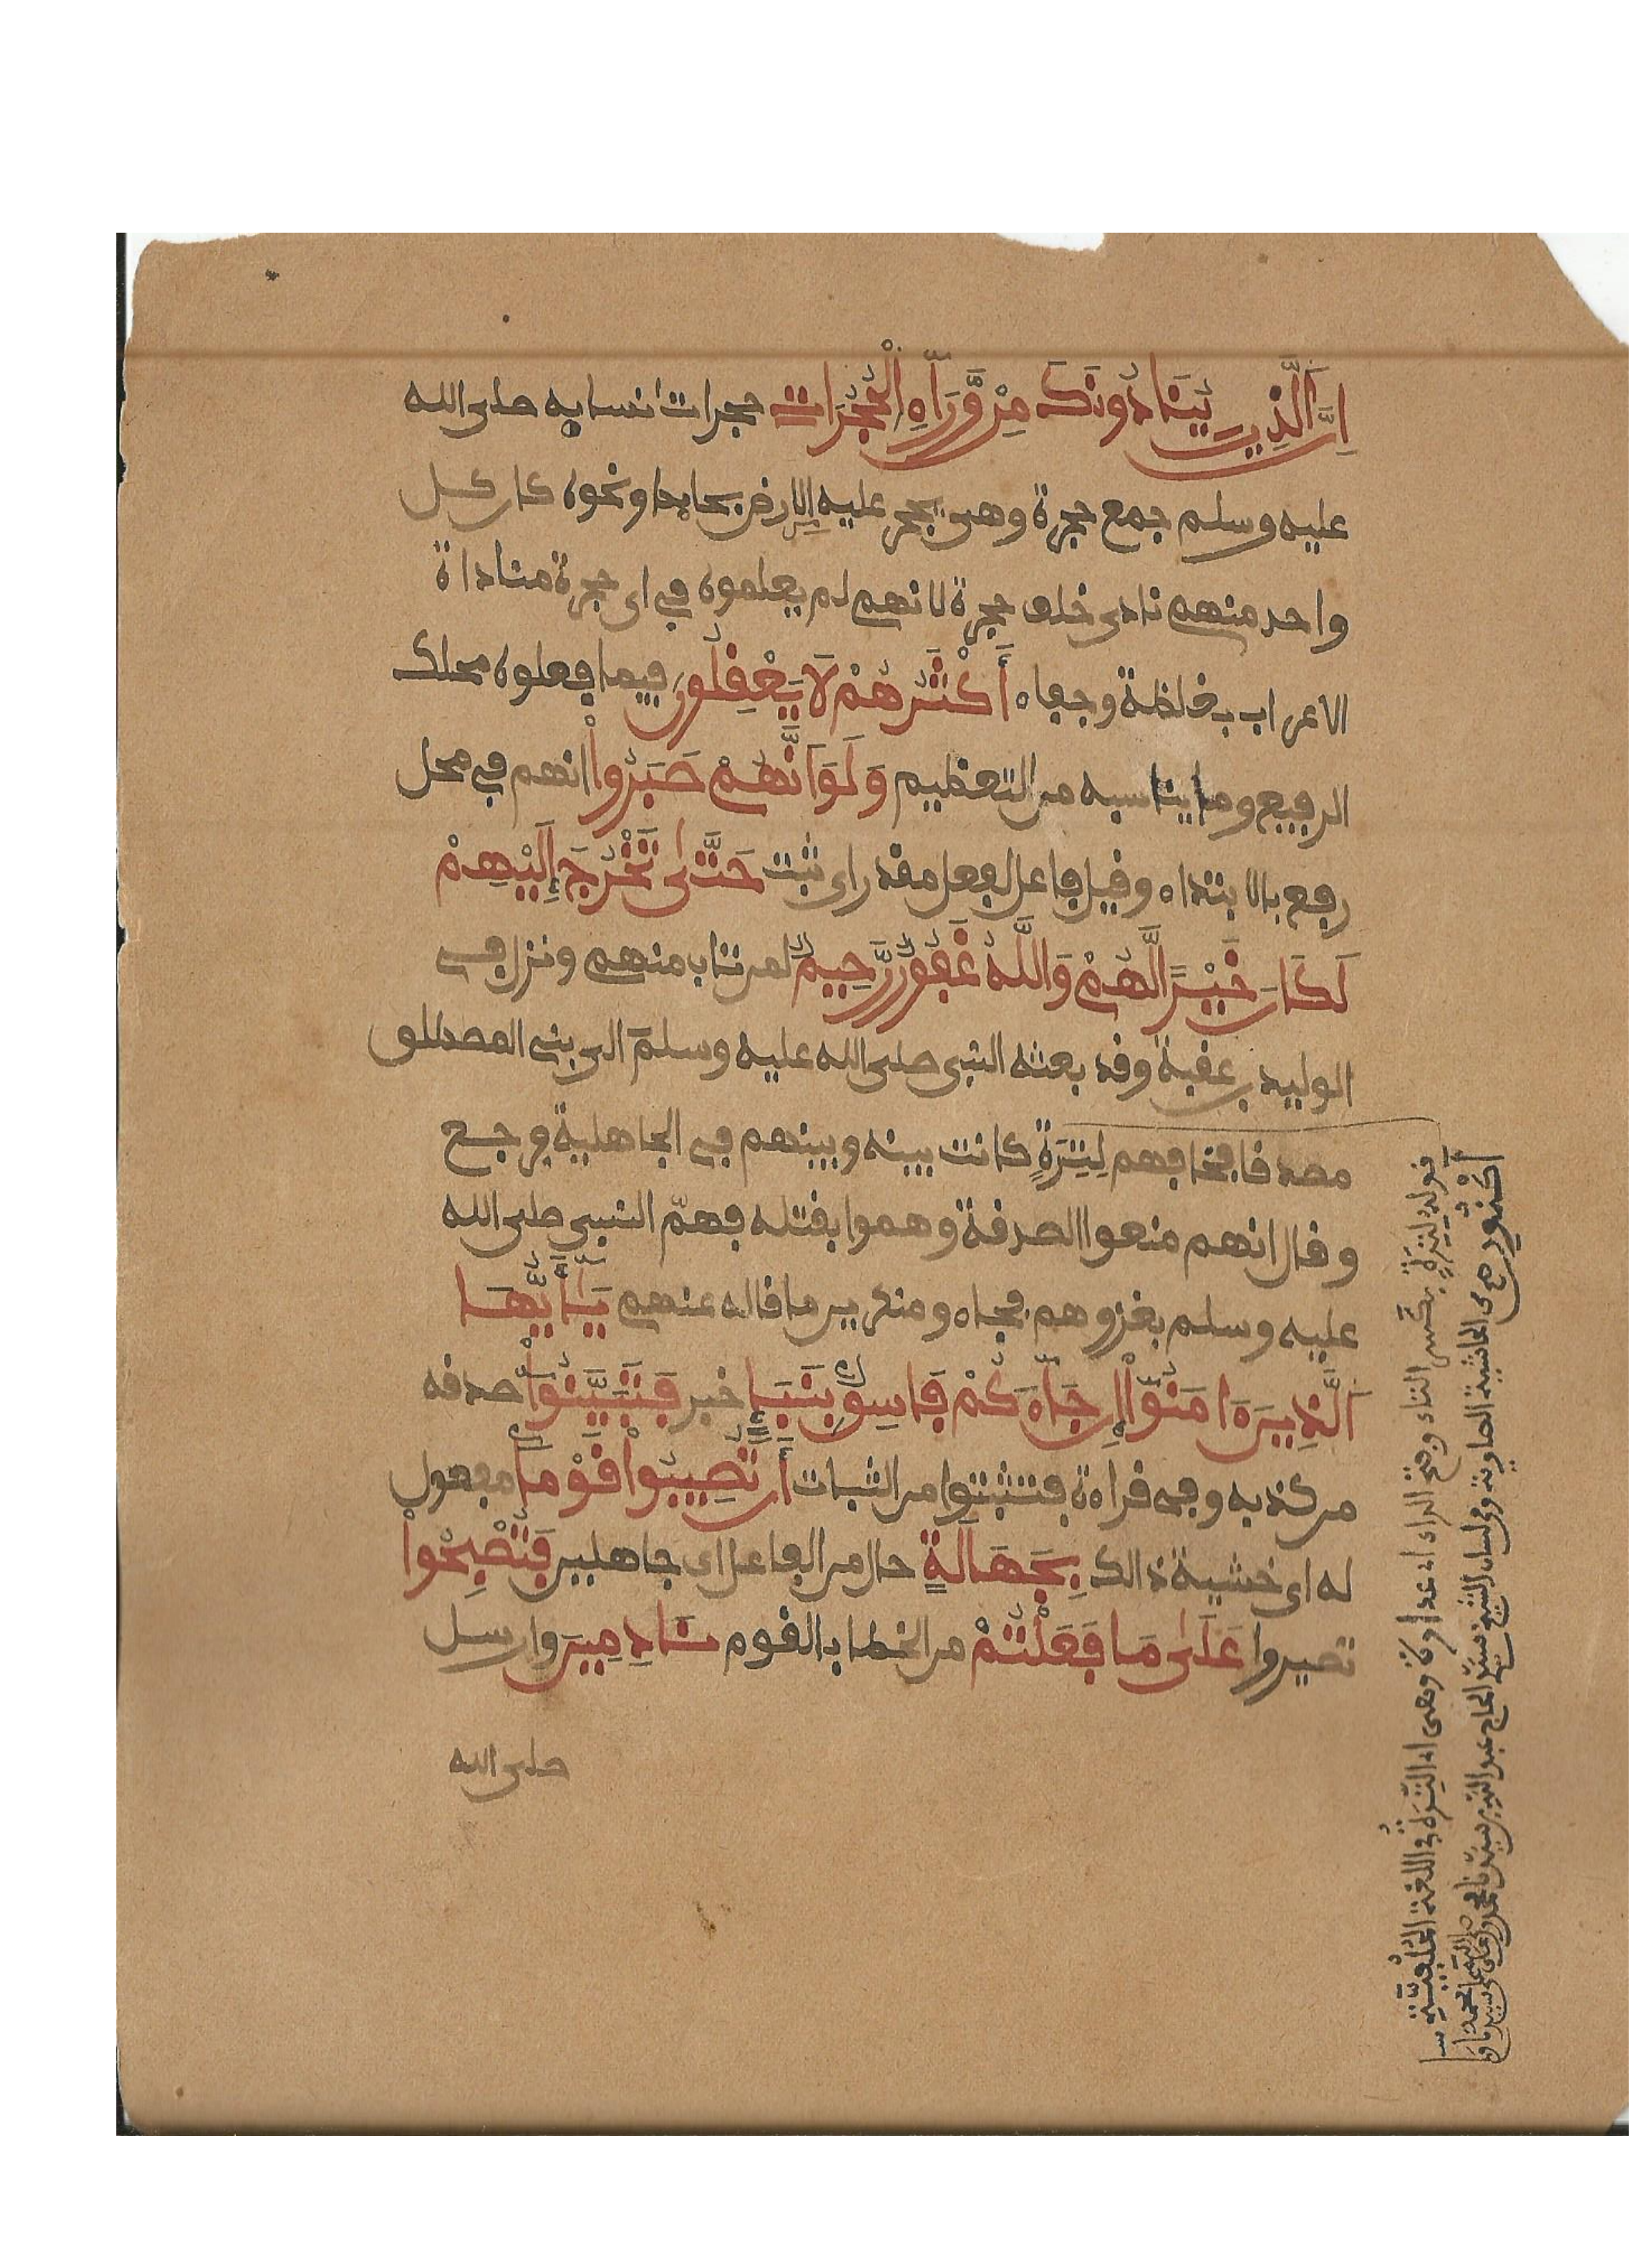 اِنَّ اَلَّذِينَ يُنَادُونَكَ مِنْ وَّرَآءِ اِلْحُجُرَاتِ حجرات نسايه صلى الله
عليه وسلم جمع حجرة وهى يحجر عليه الارض بحايط ونحوه كان كل
واحد منهم نادى خلف حجرة لانهم لم يعلموه في اى حجرة مناداة
الاعراب بغلظة وجفاء أَكْثَرُهُمْ لَا يَعْقِلُونَ فيما فعلوه محلك
الرفيع وما يناسبه من التعظيم وَلَوَ اَنَّهُمْ صَبَرُواْ انهم في محل
رفع بالابتداء وقيل فاعل لفعل مقدر اى ثبت حَتَّىٰ تَخْرُجَ إِلَيْهِمْ
لَكَانَ خَيْراً لَّهُمْ وَاللَّهُ غَفُورٌ رَّحِيمٌ لمن تاب منهم ونزل في
الوليد بن عقبة وقد بعثه النبى صلى الله عليه وسلم الى بنى المصطلق
مصدقا فخافهم لِتِرَةٍ كانت بينه وبينهم في الجاهلية فرجع
وقال انهم منعوا الصدقة وهموا بقتله فهمّ النبي صلى الله
عليه وسلم بغزوهم فجاءو منكرين ما قاله عنهم يَـٰٓأَيُّهَا
اَلذِينَ ءَامَنُوٓاْ إِن جَآءَكُمْ فَاسِقُۢ بِنَبَإٍ خبر فَتَبَيَّنُوٓاْ صدقه
من كذبه وفي قراءة فتثبتوا من الثبات أَن تُصِيبُواْ قَوْماَۢ مفعول
له اى خشية ذالك بِجَهَٰلَةٍ حال من الفاعل اى جاهلين فَتُصْبِحُواْ
تصيروا عَلَىٰ مَا فَعَلْتُمْ من الخطا بالقوم نَٰدِمِينَ وارسل
صلى الله
قوله لِتِرَةٍ بكسر التاء وفتح الراء اى عداوة وهى اى التِّرَة في اللغة
من الحاشية الصاوية